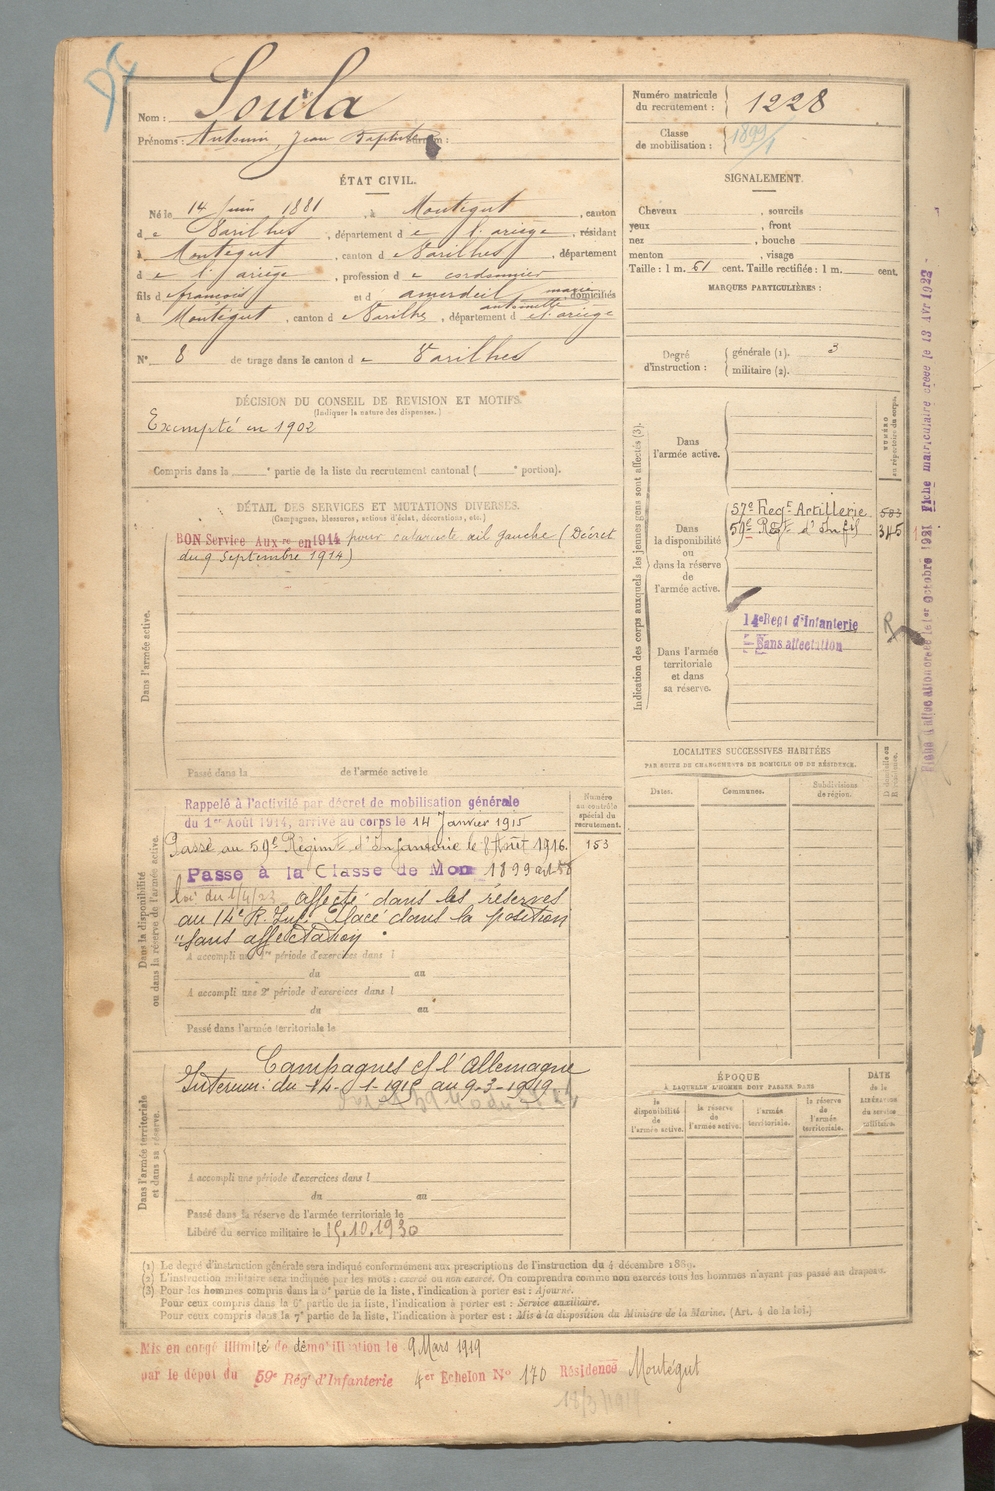 Nom : Soula
Prénoms : Antonin, Jean Baptiste Surnom :
Numéro matricule du recrutement : 1228
Classe de mobilisation : 1899/1
ÉTAT CIVIL.
Né le 14 Juin 1881, à Montégut, canton
d e Varilhes, département d e l'ariège, résidant
à Montégut, canton d e Varilhes, département
d e l'ariège, profession d e cordonnier
fils d e françois et d' amerdeil marie antoinette domiciliés
à Montégut, canton d e Varilhes, département d e l'ariège
N° 8 de tirage dans le canton d e Varilhes
SIGNALEMENT.
Cheveux , sourcils
yeux , front
nez , bouche
menton , visage
Taille : 1 m. 61 cent. Taille rectifiée : 1 m. cent.
MARQUES PARTICULIÈRES :
Degré d'instruction : générale (1). 3
militaire (2).
DÉCISION DU CONSEIL DE REVISION ET MOTIFS.
(Indiquer la nature des dispenses.)
Exempté en 1902
Compris dans la e partie de la liste du recrutement cantonal ( e portion).
DÉTAIL DES SERVICES ET MUTATIONS DIVERSES.
(Campagnes, blessures, actions d'éclat, décorations, etc.)
Dans l'armée active.
BON Service Aux re en 1914 pour cataracte œil gauche (Décret
du 9 Septembre 1914)
Passé dans la de l'armée active le
Indication des corps auxquels les jeunes gens sont affectés (3).
NUMÉRO au répertoire du corps.
Dans l'armée active.
Dans la disponibilité ou dans la réserve de l'armée active.
57e Regt Artillerie 583
59e Regt d'Infie 345
Dans l'armée territoriale et dans sa réserve.
14e Regt d'Infanterie
Sans affectation
Fiche d'affectation créée le 1er octobre 1921 Fiche matriculaire créée le 13 Avr 1922
LOCALITÉS SUCCESSIVES HABITÉES
PAR SUITE DE CHANGEMENTS DE DOMICILE OU DE RÉSIDENCE.
Dates.
Communes.
Subdivisions de région.
D. domicile ou R. résidence.
Dans la disponibilité ou dans la réserve de l'armée active.
Numéro au contrôle spécial du recrutement.
153
Rappelé à l'activité par décret de mobilisation générale
du 1er Août 1914, arrivé au corps le 14 Janvier 1915
Passé au 59e Régimt d'Infanterie le 8 Août 1916.
Passé à la Classe de Mon 1899 art 58
loi du 1/4/23 affecté dans les réserves
au 14e R. Inf. Placé dans la position
"sans affectation".
A accompli une 1re période d'exercices dans l
du au
A accompli une 2e période d'exercices dans l
du au
Passé dans l'armée territoriale le
Dans l'armée territoriale et dans sa réserve.
Campagnes c/ l'Allemagne
Intérieur: du 14-1-1915 au 9-3-1919
A accompli une période d'exercices dans l
du au
Passé dans la réserve de l'armée territoriale le
Libéré du service militaire le 15.10.1930
ÉPOQUE
À LAQUELLE L'HOMME DOIT PASSER DANS
la disponibilité de l'armée active.
la réserve de l'armée active.
l'armée territoriale.
la réserve de l'armée territoriale.
DATE de la LIBÉRATION du service militaire.
(1) Le degré d'instruction générale sera indiqué conformément aux prescriptions de l'instruction du 4 décembre 1889.
(2) L'instruction militaire sera indiquée par les mots : exercé ou non exercé. On comprendra comme non exercés tous les hommes n'ayant pas passé au drapeau.
(3) Pour les hommes compris dans la 5e partie de la liste, l'indication à porter est : Ajourné.
Pour ceux compris dans la 6e partie de la liste, l'indication à porter est : Service auxiliaire.
Pour ceux compris dans la 7e partie de la liste, l'indication à porter est : Mis à la disposition du Ministre de la Marine. (Art. 4 de la loi.)
Mis en congé illimité de démobilisation le 9 Mars 1919
par le dépôt du 59e Rég' d'Infanterie 4er Echelon N° 170 Résidence Montégut